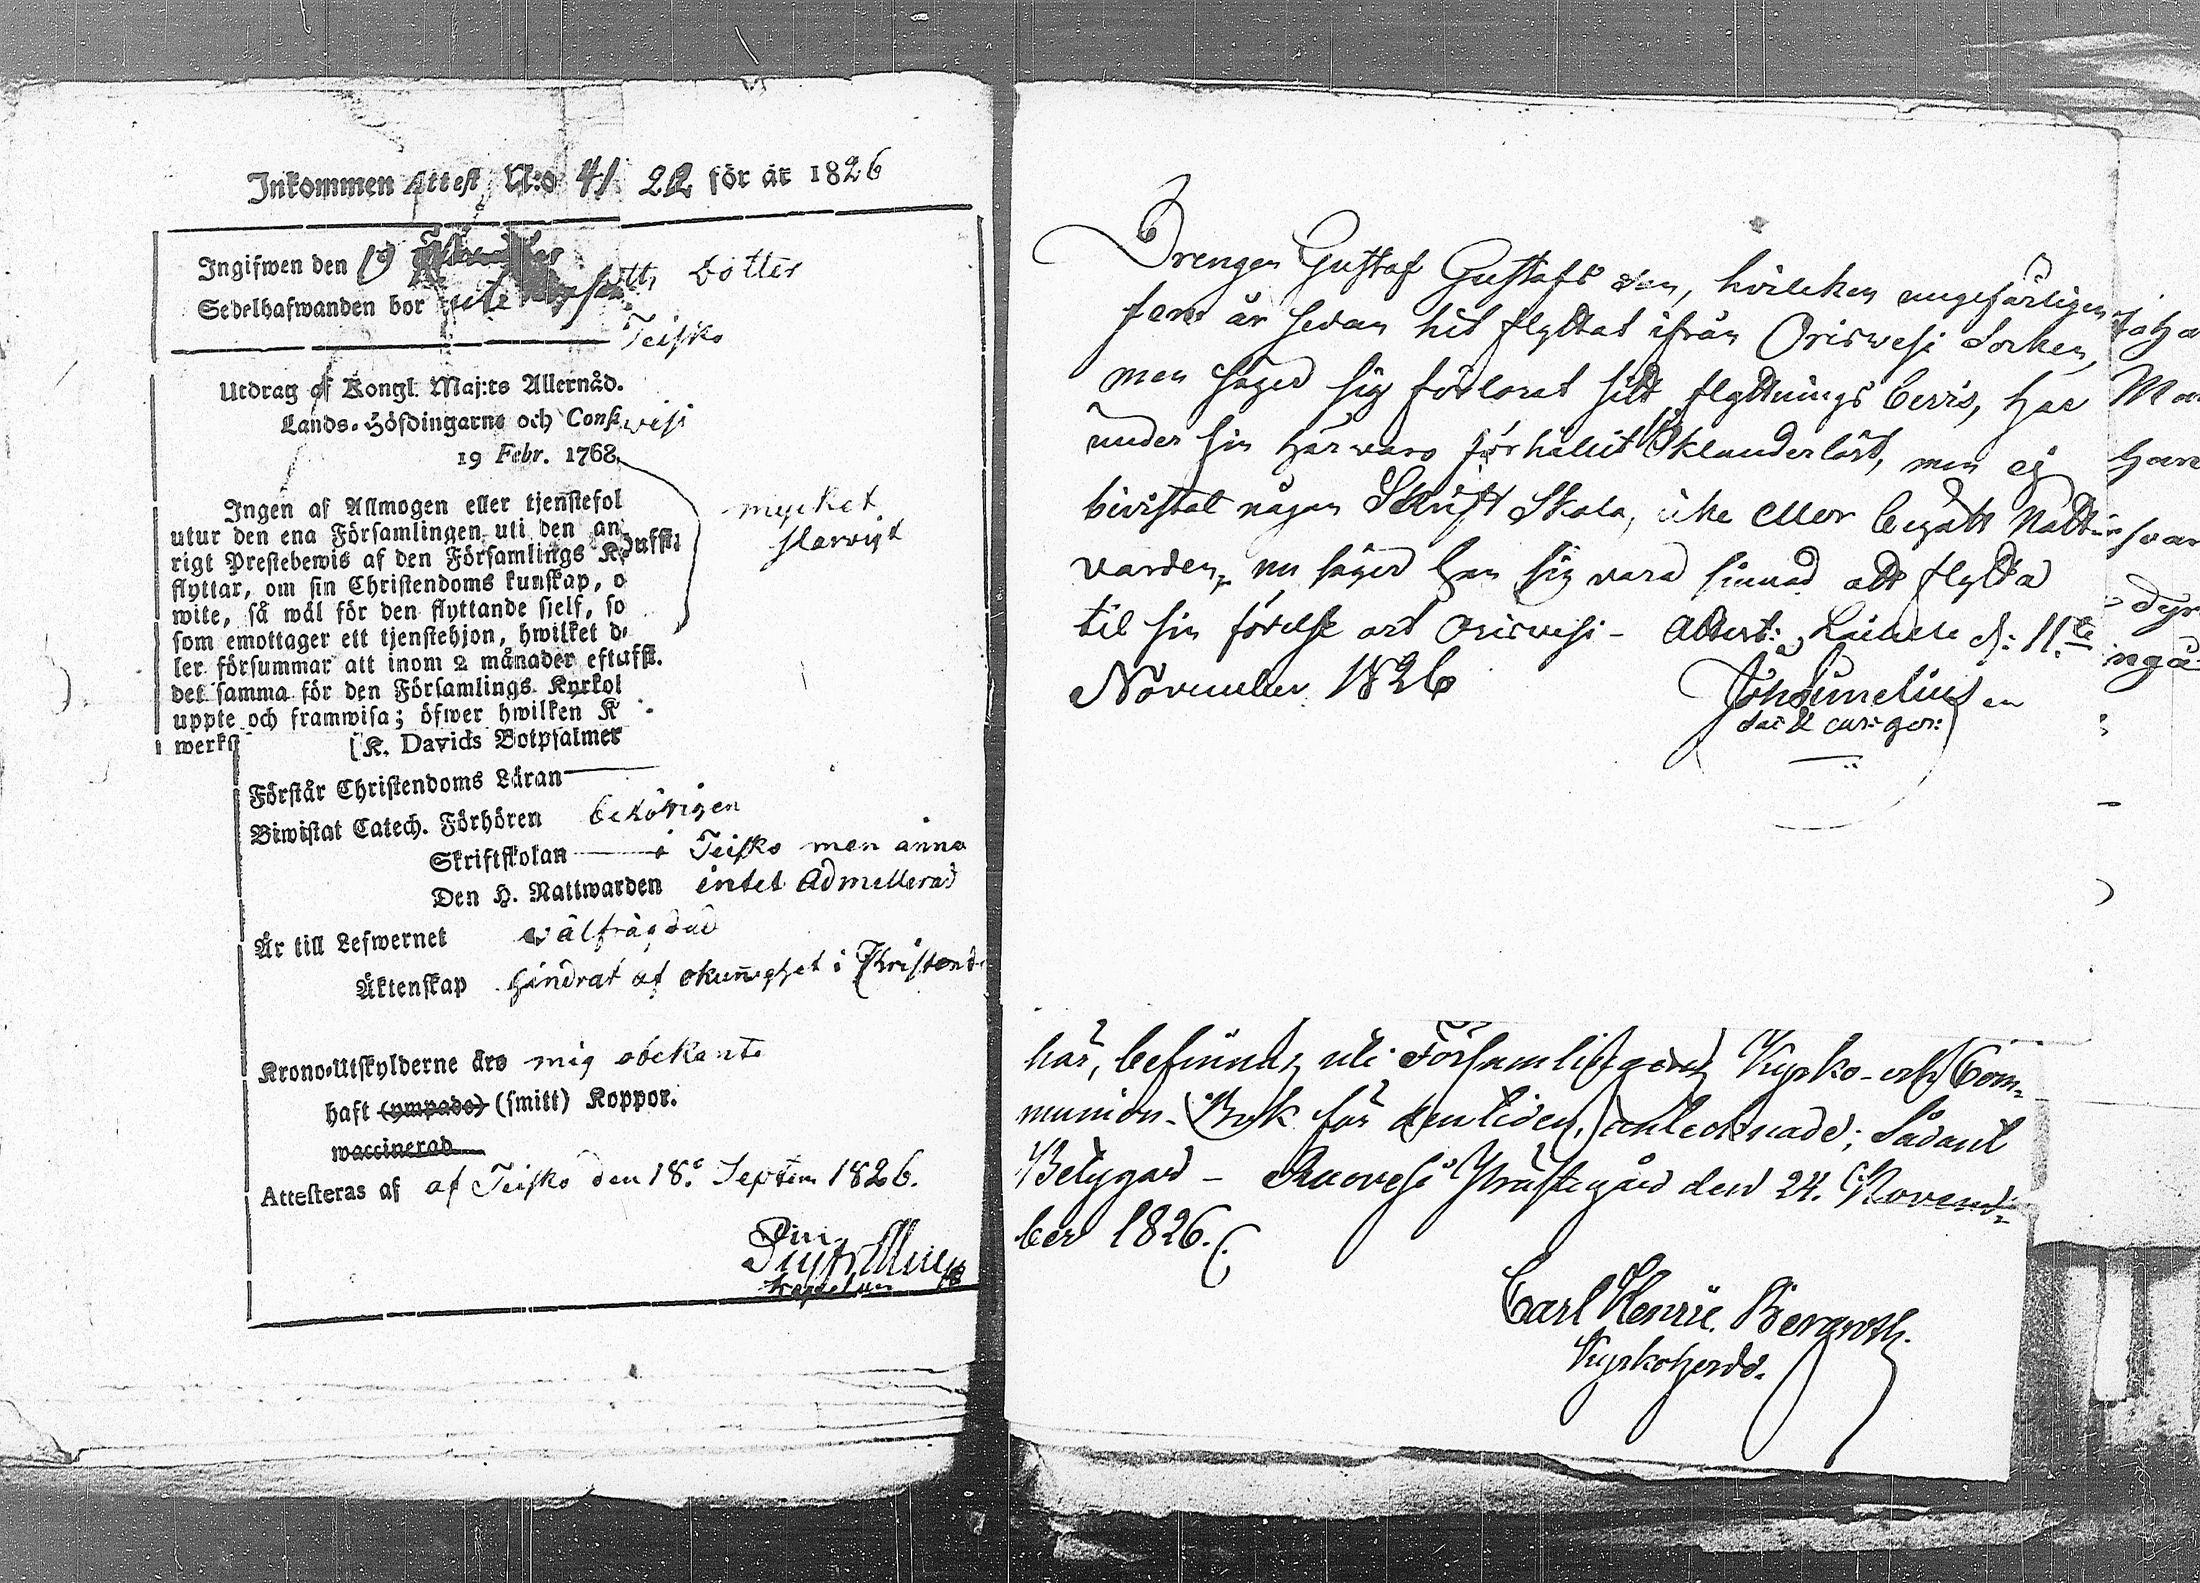 Inkommen Attest N:o 41 22 för år 1826
Ingifwen den 19
Sedelhafwanden bor dotter
Teisko
Utdrag af Kongl. Maj:ts Allernåd.
Lands-Höfdingarne och Cons
19 Febr. 1768.
Ingen af Allmogen eller tjenstefol
utur den ena Församlingen uti den an
rigt Prestebewis af den Församlings K
flyttar, om sin Christendoms kunskap, o
wite, så wäl för den flyttande sjelf, so
som emottager ett tjenstehjon, hwilket d
ler försummar att inom 2 månader eft
det samma för den Församlings Kyrkol
uppte och framwisa; öfwer hwilken K
werks
mycket
slarvigt
[K. Davids Botpsalmer
Förstår Christendoms Läran
Biwistat Catech. Förhören behörigen
Skriftskolan i Teisko men ännu
Den H. Nattwarden intet Admitterad
Är till Lefwernet wälfrägdad
Äktenskap Hindrat af okunnighet i Christend
Krono-Utskylderne äro mig obekante
haft (ympade) (smitt) Koppor.
waccinerad
Attesteras af af Teisko den 18 Septem 1826.
Drengen Gustaf Gustafs son, hvilcken ungefärligen
fem år sedan hit flyttat ifrån Oriswesi Socken,
men säger sig förlorat sitt flyttnings bevis, har
under sin härvaro förhållit Sig oklanderlöst, men ej
bivistat någon Skrift Skola, icke eller begått Natt
varden, nu säger han sig vara sinnad att flytta
til sin födelse ort Oriswesi - Attest: d: 11te
November 1826
här, befinnas uti Församlingens Kyrko- och Com-
munion-Bok för den tiden, antecknade; Sådant
Betygar - Ruovesi Prästegård den 24. Novem-
ber 1826.
Carl Henric Bergroth.
Kyrkoherde.